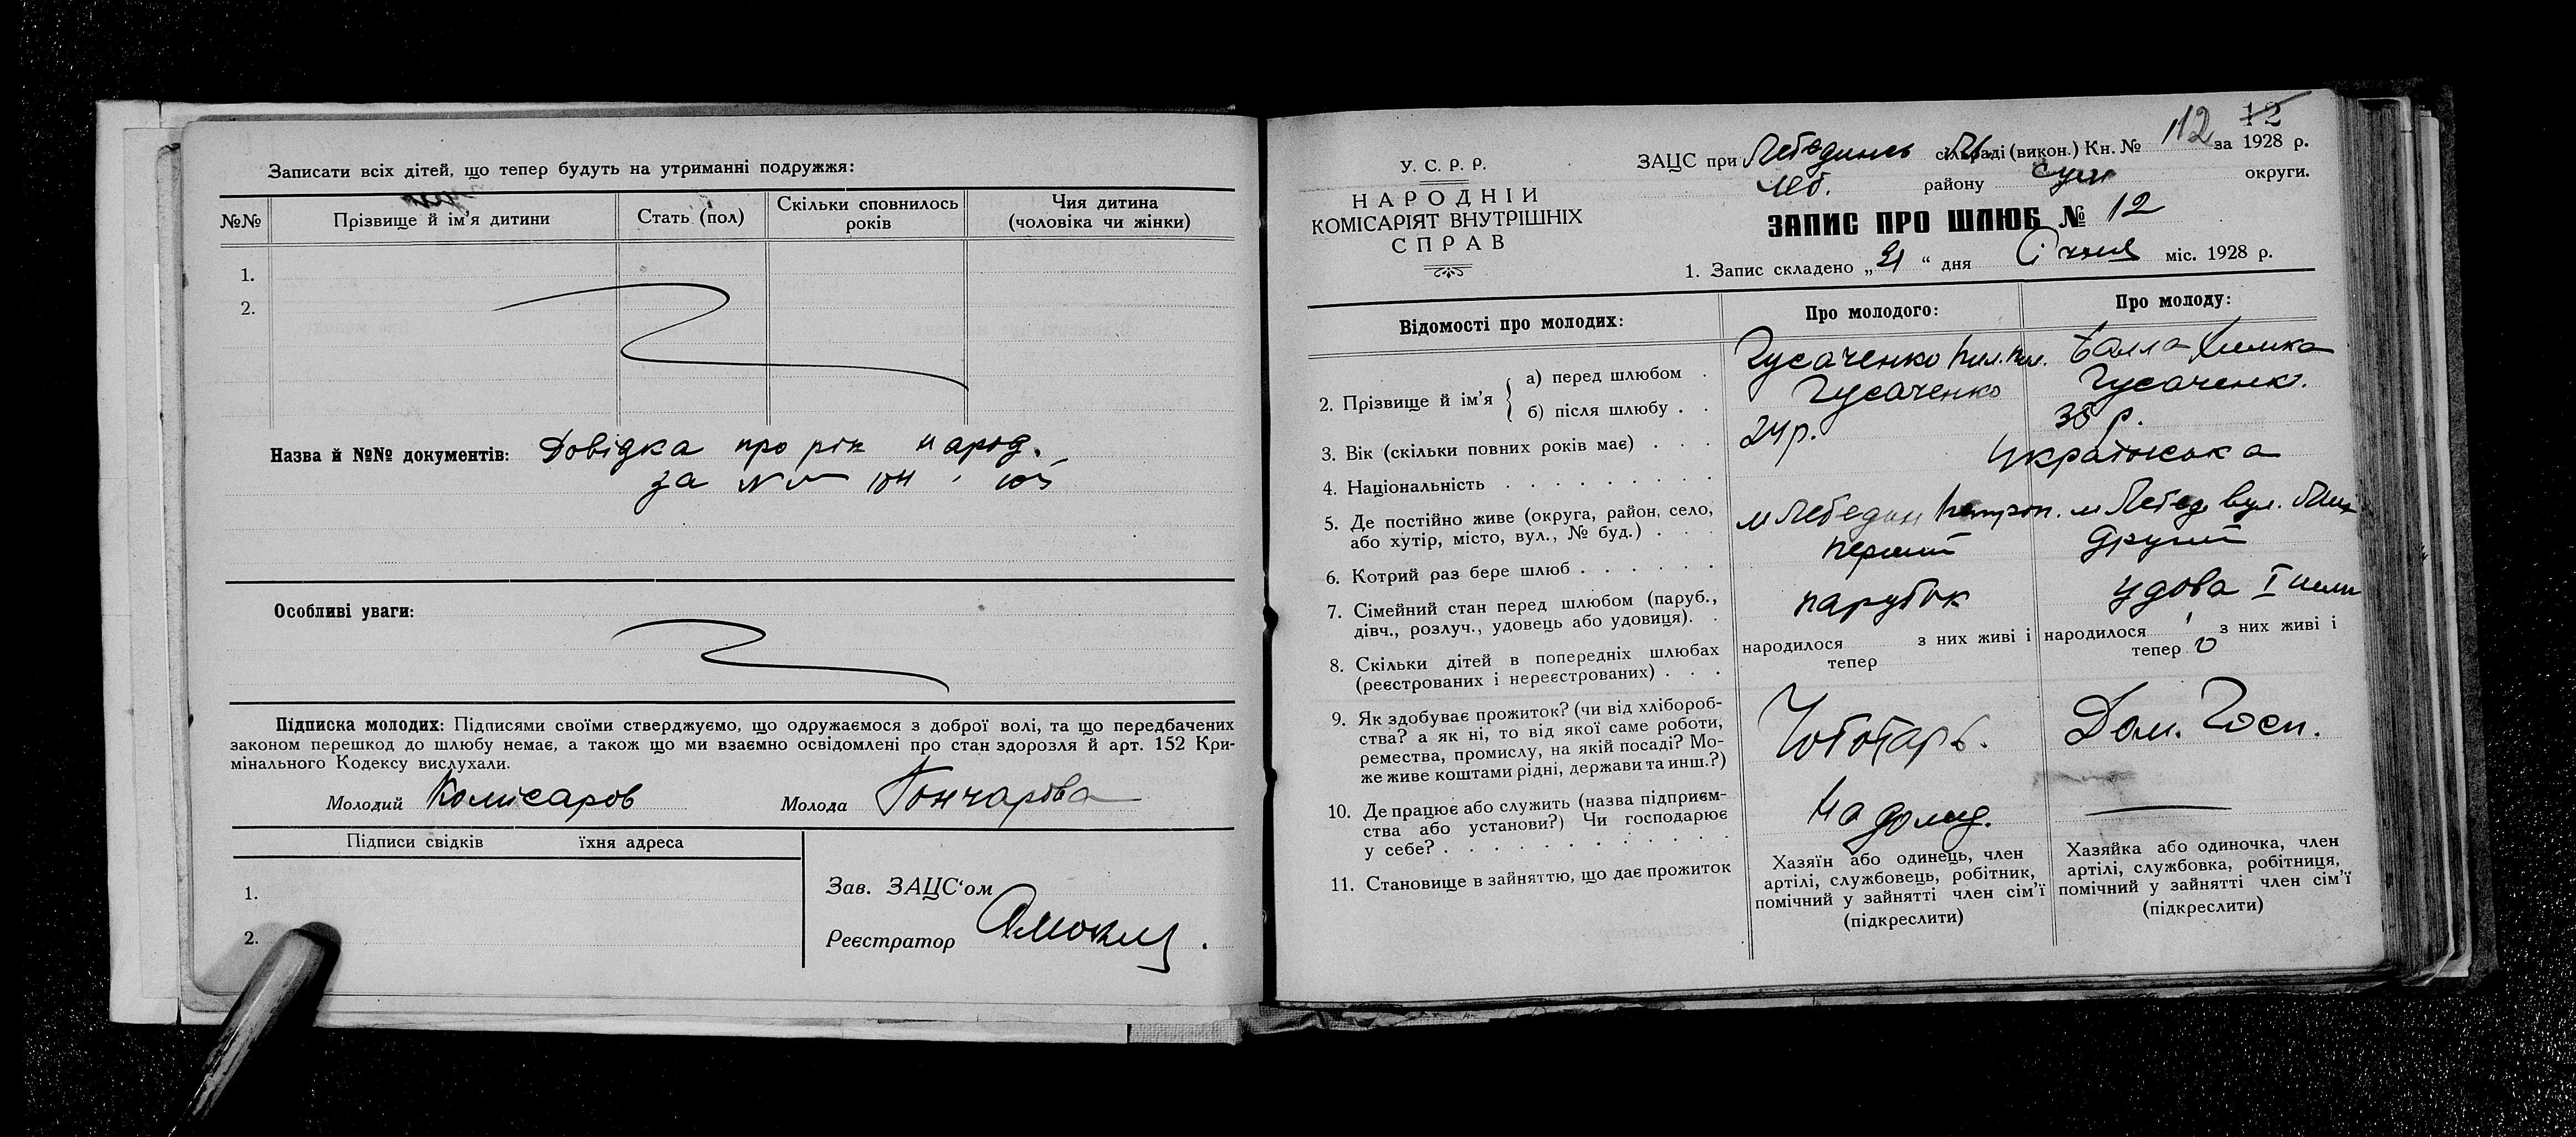 Записати всіх дітей, що тепер будуть на утриманні подружжя:
№№ Прізвище й ім'я дитини Стать (пол) Скільки сповнилось років Чия дитина (чоловіка чи жінки)
1.
2.
Назва й №№ документів: Довідка про рік народ.
за №№ 104 105
Особливі уваги:
Підписка молодих: Підписями своїми стверджуємо, що одружаємося з доброї волі, та що передбачених
законом перешкод до шлюбу немає, а також що ми взаємно освідомлені про стан здоровля й арт. 152 Кри-
мінального Кодексу вислухали.
Молодий Комісаров Молода Гончарова
Підписи свідків їхня адреса
1.
2.
Зав. ЗАЦС'ом
Реєстратор
У. С. Р. Р.
НАРОДНІЙ
КОМІСАРІЯТ ВНУТРІШНІХ
СПРАВ
12
ЗАЦС при Лебединсь сільраді (викон.) Кн. № 112 за 1928 р.
Леб. району Сум округи.
ЗАПИС ПРО ШЛЮБ № 12
1. Запис складено „21“ дня Січня міс. 1928 р.
Відомості про молодих: Про молодого: Про молоду:
2. Прізвище й ім'я а) перед шлюбом . Гусаченко Пил. Пил. Балла Химка
б) після шлюбу . . Гусаченко Гусаченко.
3. Вік (скільки повних років має) . . . 24 р. 38 р.
4. Національність . . . . . . . . . Українська
5. Де постійно живе (округа, район, село,
або хутір, місто, вул., № буд.) . . . м Лебедин Петроп. м Лебед вул.
6. Котрий раз бере шлюб . . . . . . перший другий
7. Сімейний стан перед шлюбом (паруб.,
дівч., розлуч., удовець або удовиця). . парубок удова I
8. Скільки дітей в попередніх шлюбах
(реєстрованих і нереєстрованих) . . .
народилося з них живі і
тепер
народилося 1 з них живі і
тепер 0
9. Як здобуває прожиток? (чи від хлібороб-
ства? а як ні, то від якої саме роботи,
ремества, промислу, на якій посаді? Мо-
же живе коштами рідні, держави та инш.?)
Чоботарь. Дом. Госп.
10. Де працює або служить (назва підприєм-
ства або установи?) Чи господарює
у себе? . . . . . . . . . . . .
На дому.
11. Становище в зайняттю, що дає прожиток
Хазяїн або одинець, член
артілі, службовець, робітник,
помічний у зайнятті член сім'ї
(підкреслити)
Хазяйка або одиночка, член
артілі, службовка, робітниця,
помічний у зайнятті член сім'ї
(підкреслити)